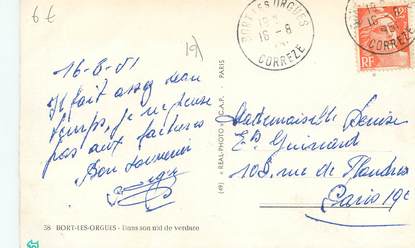 6 €
19
BORT-LES-ORGUES
16 - 8
CORREZE
12F
RF
16-8-51
Il fait assez beau
temps, je ne pense
pas aux factures
Bon souvenir
58 BORT-LES-ORGUES - Dans son nid de verdure
(49) « REAL-PHOTO » C.A.P. - PARIS
Mademoiselle Denise
Guinard
108 rue de Flandres
Paris 19e